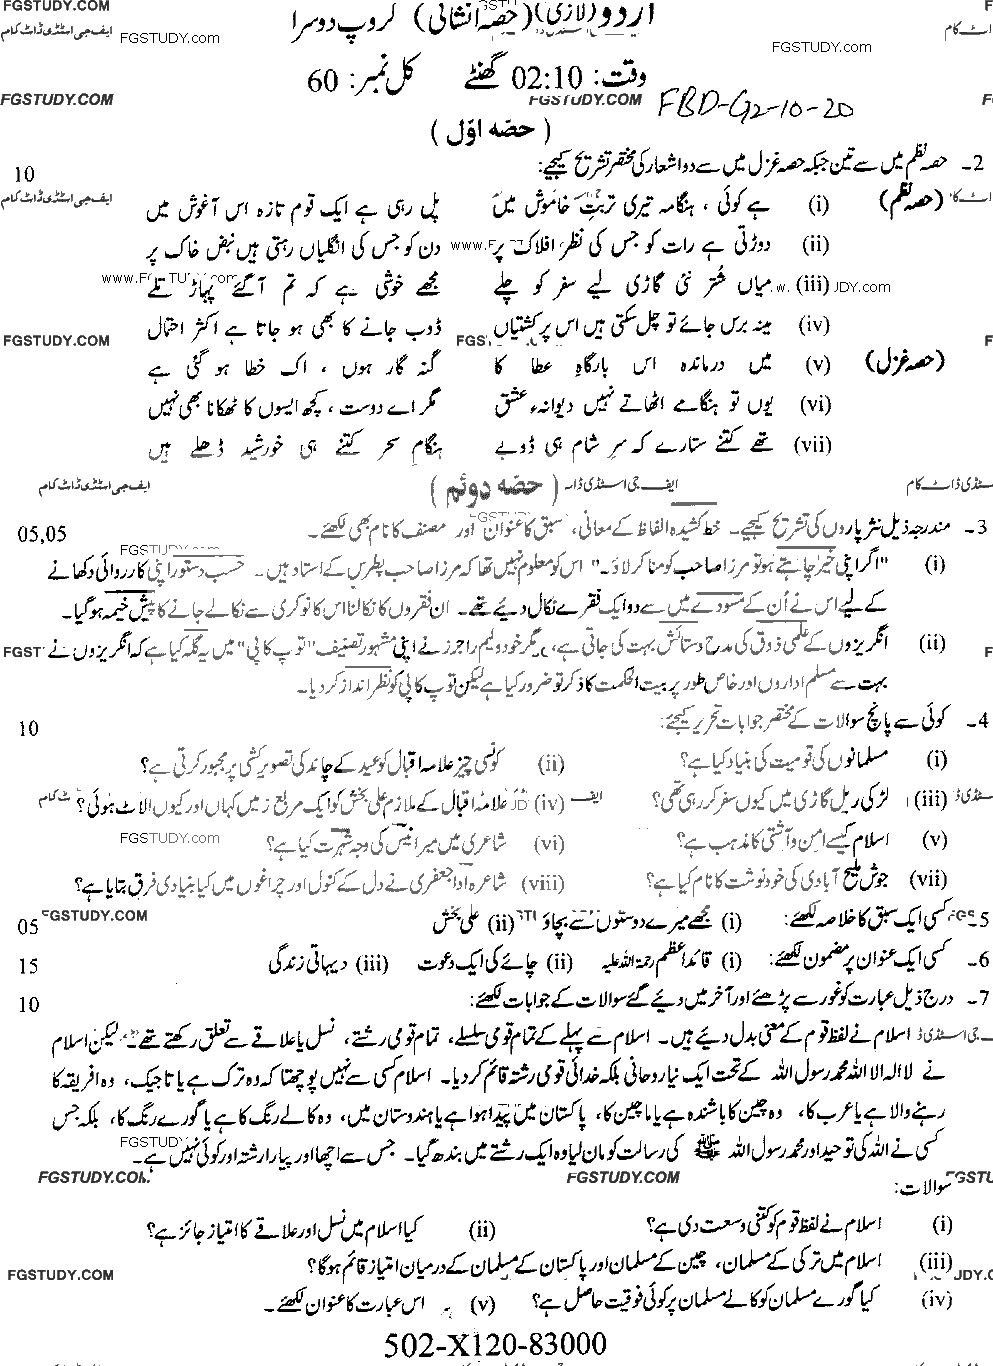 FGSTUDY.COM اردو (لازمی) (حصہ انشائی) گروپ دوسرا
ایف جی اسٹڈی ڈاٹ کام FGSTUDY.com FGSTUDY.com
وقت: 02:10 گھنٹے کل نمبر: 60
FGSTUDY.COM FGSTUDY.COM FBD-G2-10-20
(حصّہ اوّل)
2۔ حصہ نظم میں سے تین جبکہ حصہ غزل میں سے دو اشعار کی مختصر تشریح کیجیے: 10
(حصہ نظم) (i) ہے کوئی ، ہنگامہ تیری تربت خاموش میں پل رہی ہے ایک قوم تازہ اس آغوش میں
(ii) دوڑتی ہے رات کو جس کی نظر افلاک پر دن کو جس کی انگلیاں رہتی ہیں نبض خاک پر
(iii) میاں شتر نئی گاڑی لیے سفر کو چلے مجھے خوشی ہے کہ تم آ گئے پہاڑ تلے
(iv) مینہ برس جائے تو چل سکتی ہیں اس پر کشتیاں ڈوب جانے کا بھی ہو جاتا ہے اکثر احتمال
(حصہ غزل) (v) میں درماندہ اس بارگاہِ عطا کا گنہ گار ہوں ، اک خطا ہو گئی ہے
(vi) یوں تو ہنگامے اٹھاتے نہیں دیوانہء عشق مگر اے دوست ، کچھ ایسوں کا ٹھکانا بھی نہیں
(vii) تھے کتنے ستارے کہ سرِ شام ہی ڈوبے ہنگامِ سحر کتنے ہی خورشید ڈھلے ہیں
(حصّہ دوئم)
3۔ مندرجہ ذیل نثر پاروں کی تشریح کیجیے۔ خط کشیدہ الفاظ کے معانی، سبق کا عنوان اور مصنف کا نام بھی لکھئے۔ 05,05
(i) "اگر اپنی خیر چاہتے ہو تو مرزا صاحب کو منا کر لاؤ۔" اس کو معلوم نہیں تھا کہ مرزا صاحب پطرس کے استاد ہیں۔ حسب دستور اپنی کارروائی دکھانے
کے لیے اس نے اُن کے مسودے میں سے دو ایک فقرے نکال دیئے تھے۔ ان فقروں کا نکالنا اس کا نوکری سے نکالے جانے کا پیش خیمہ ہو گیا۔
(ii) انگریزوں کے علمی ذوق کی مدح و ستائش بہت کی جاتی ہے، مگر خود ولیم راجرز نے اپنی مشہور تصنیف "توپ کاپی" میں یہ گلہ کیا ہے کہ انگریزوں نے
بہت سے مسلم اداروں اور خاص طور پر بیت الحکمت کا ذکر تو ضرور کیا ہے لیکن توپ کاپی کو نظر انداز کر دیا۔
4۔ کوئی سے پانچ سوالات کے مختصر جوابات تحریر کیجئے: 10
(i) مسلمانوں کی قومیت کی بنیاد کیا ہے؟ (ii) کونسی چیز علامہ اقبال کو عید کے چاند کی تصویر کشی پر مجبور کرتی ہے؟
(iii) لڑکی ریل گاڑی میں کیوں سفر کر رہی تھی؟ (iv) علامہ اقبال کے ملازم علی بخش کو ایک مربع زمین کہاں اور کیوں الاٹ ہوئی؟
(v) اسلام کیسے امن و آشتی کا مذہب ہے؟ (vi) شاعری میں میر انیس کی وجہ شہرت کیا ہے؟
(vii) جوش ملیح آبادی کی خود نوشت کا نام کیا ہے؟ (viii) شاعرہ ادا جعفری نے دل کے کنول اور چراغوں میں کیا بنیادی فرق بتایا ہے؟
5۔ کسی ایک سبق کا خلاصہ لکھئے: (i) مجھے میرے دوستوں سے بچاؤ (ii) علی بخش 05
6۔ کسی ایک عنوان پر مضمون لکھئے: (i) قائد اعظم رحمۃ اللہ علیہ (ii) چائے کی ایک دعوت (iii) دیہاتی زندگی 15
7۔ درج ذیل عبارت کو غور سے پڑھئے اور آخر میں دیئے گئے سوالات کے جوابات لکھئے: 10
اسلام نے لفظ قوم کے معنی بدل دیئے ہیں۔ اسلام سے پہلے کے تمام قومی سلسلے، تمام قومی رشتے، نسل یا علاقے سے تعلق رکھتے تھے۔ لیکن اسلام
نے لا الہ الا اللہ محمد رسول اللہ کے تحت ایک نیا روحانی بلکہ خدائی قومی رشتہ قائم کر دیا۔ اسلام کسی سے نہیں پوچھتا کہ وہ ترک ہے یا تاجیک، وہ افریقہ کا
رہنے والا ہے یا عرب کا، وہ چین کا باشندہ ہے یا ماچین کا، پاکستان میں پیدا ہوا ہے یا ہندوستان میں، وہ کالے رنگ کا ہے یا گورے رنگ کا، بلکہ جس
کسی نے اللہ کی توحید اور محمد رسول اللہ ﷺ کی رسالت کو مان لیا وہ ایک رشتے میں بندھ گیا۔ جس سے اچھا اور پیارا رشتہ اور کوئی نہیں ہے۔
FGSTUDY.COM FGSTUDY.COM
سوالات:
(i) اسلام نے لفظ قوم کو کتنی وسعت دی ہے؟ (ii) کیا اسلام میں نسل اور علاقے کا امتیاز جائز ہے؟
(iii) اسلام میں ترکی کے مسلمان، چین کے مسلمان اور پاکستان کے مسلمان کے درمیان امتیاز قائم ہوگا؟
(iv) کیا گورے مسلمان کو کالے مسلمان پر کوئی فوقیت حاصل ہے؟ (v) اس عبارت کا عنوان لکھئے۔
502-X120-83000